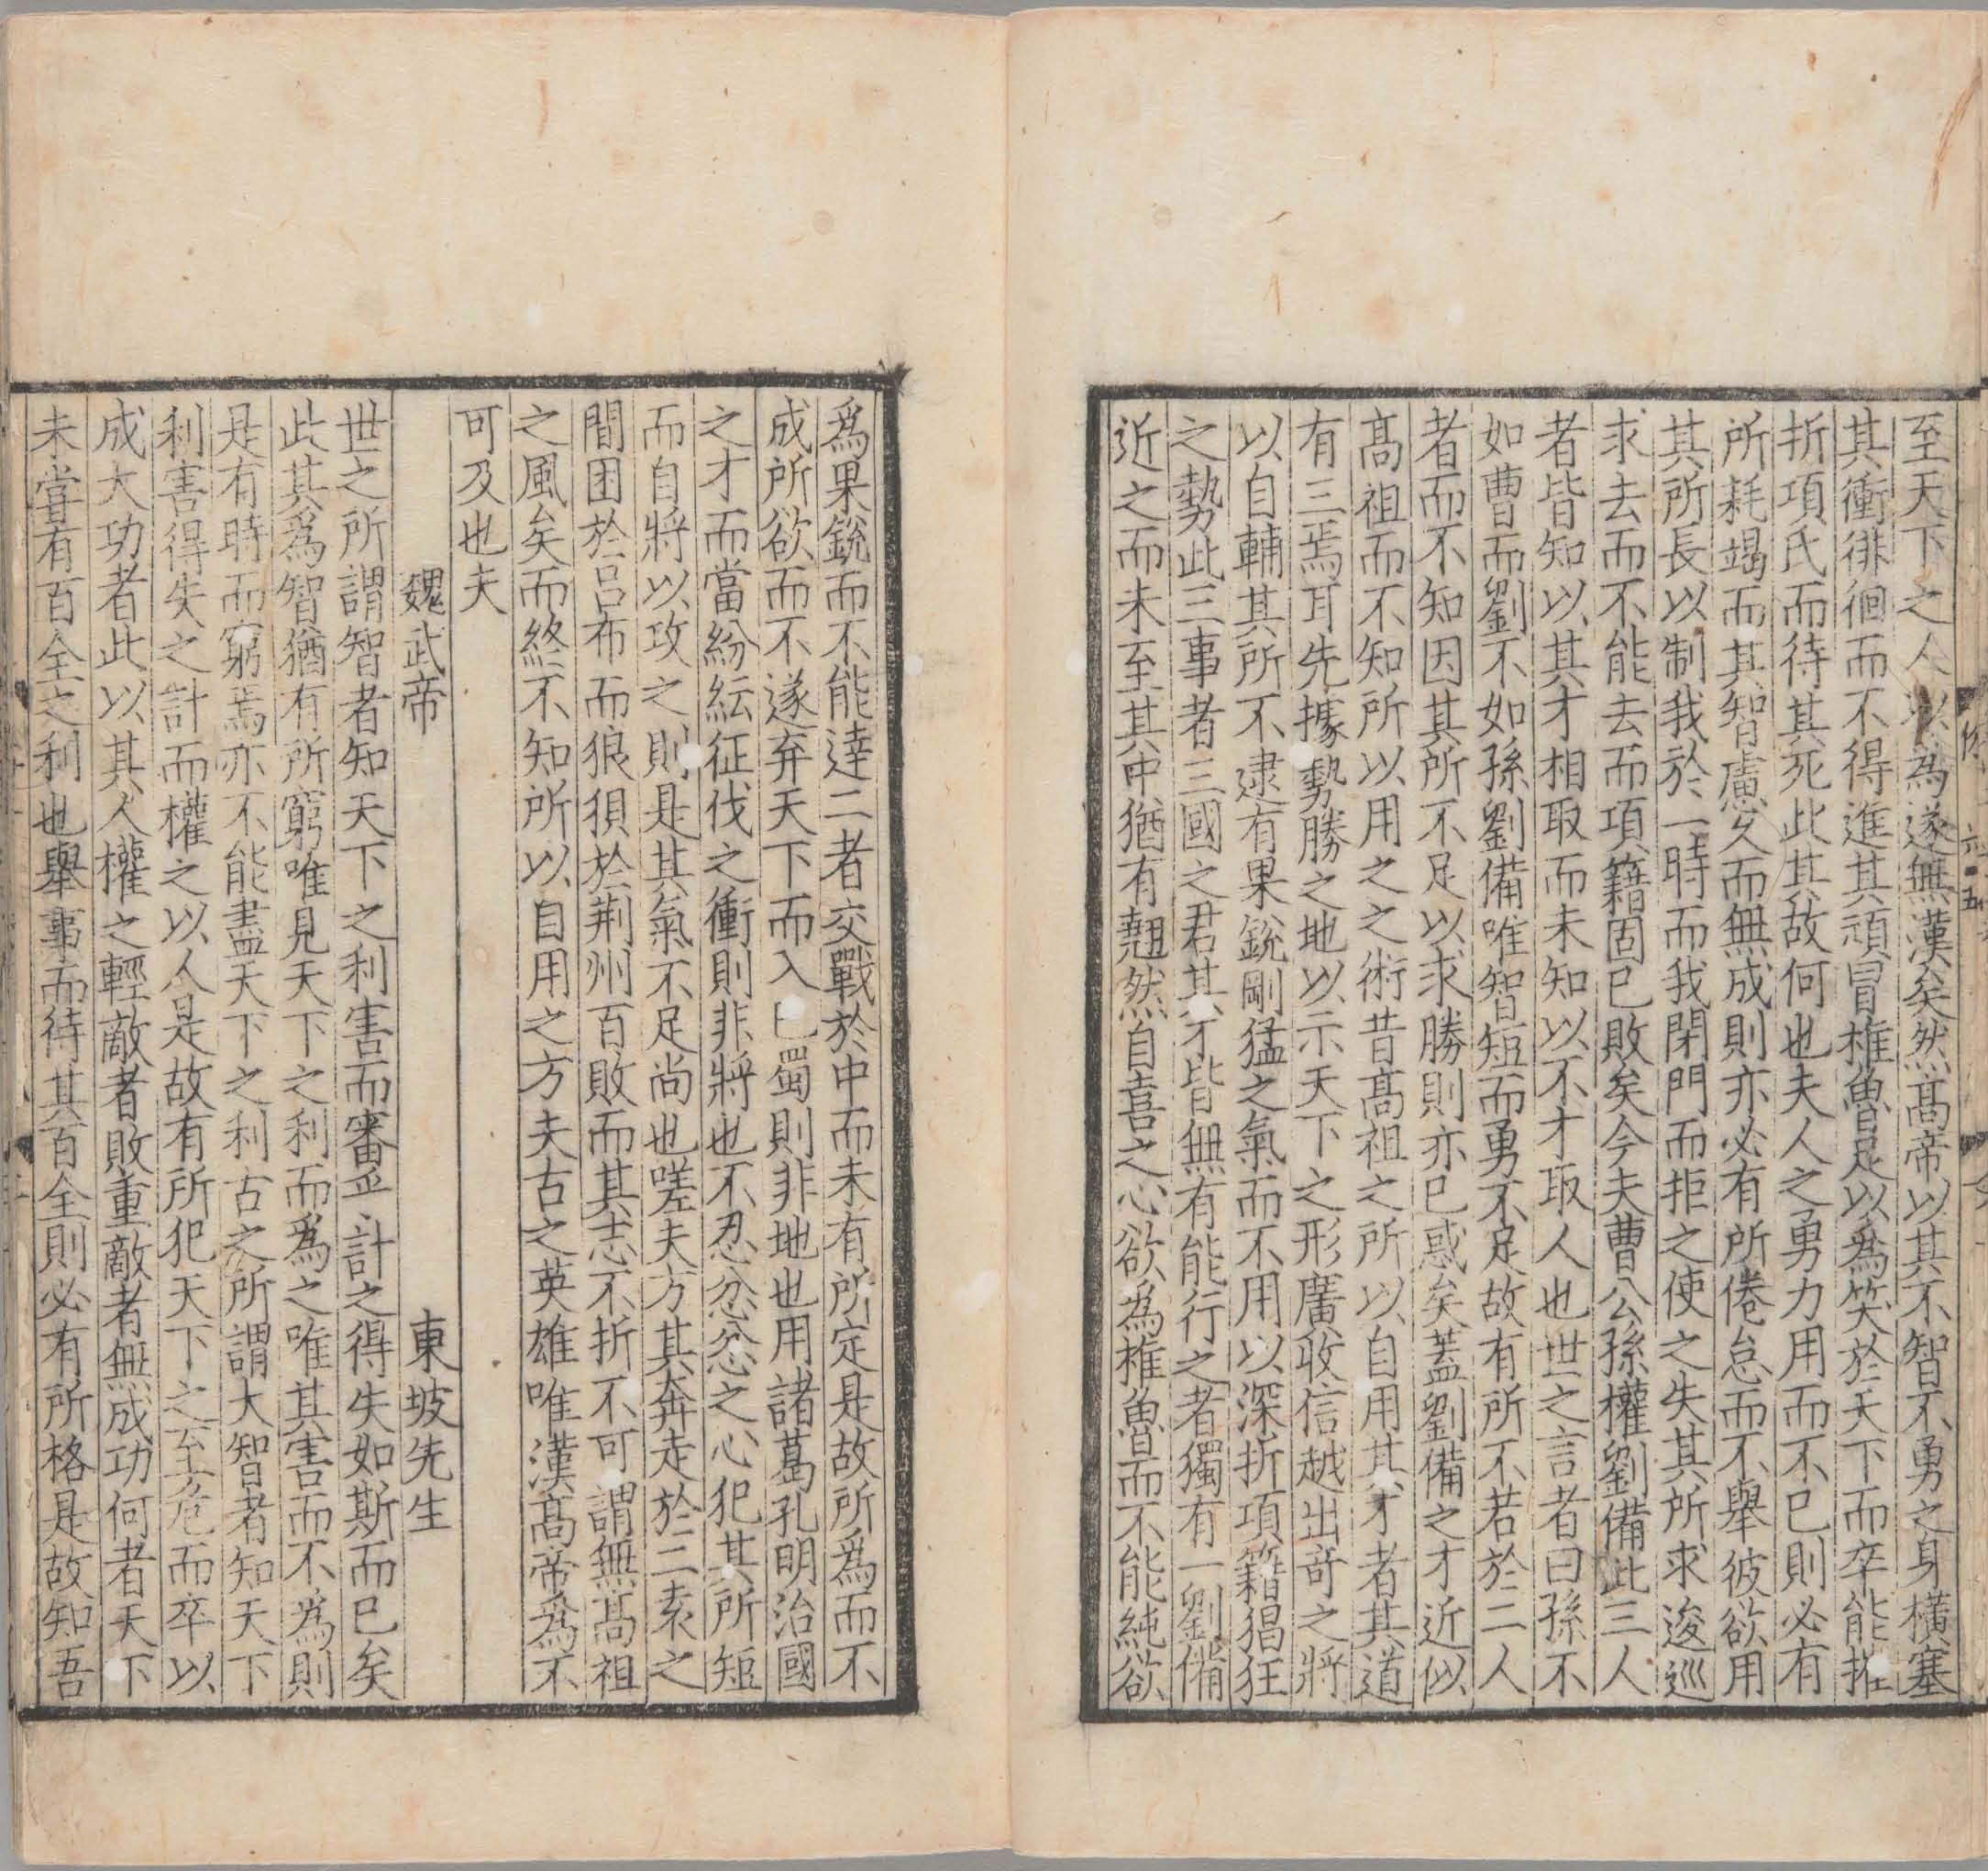 至天下之人以為遂無漢矣然髙帝以其不智不勇之身橫塞
其衝徘徊而不得進其頑冒椎魯足以為笑於天下而卒能摧
折項氏而待其死此其故何也夫人之勇力用而不已則必有
所耗竭而其智慮久而無成則亦必有所倦怠而不舉彼欲用
其所長以制我於一時而我閉門而拒之使之失其所求逡巡
求去而不能去而項籍固已敗矣今夫曹公孫權劉備此三人
者皆知以其才相取而未知以不才取人也世之言者曰孫不
如曹而劉不如孫劉備唯智短而勇不足故有所不若於二人
者而不知因其所不足以求勝則亦已惑矣蓋劉備之才近似
髙祖而不知所以用之之術昔髙祖之所以自用其才者其道
有三焉耳先據勢勝之地以示天下之形廣收信越出竒之將
以自輔其所不逮有果銳剛猛之氣而不用以深折項籍猖狂
之勢此三事者三國之君其才皆無有能行之者獨有一劉備
近之而未至其中猶有翹然自喜之心欲為椎魯而不能純欲
為果銳而不能逹二者交戰於中而未有所定是故所爲而不
成所欲而不遂弃天下而入巴蜀則非地也用諸葛孔明治國
之才而當紛紜征伐之衝則非將也不忍忿忿之心犯其所短
而自將以攻之則是其氣不足尚也嗟夫方其奔走於二袁之
間困於呂布而狼狽於荆州百敗而其志不折不可謂無髙祖
之風矣而終不知所以自用之方夫古之英雄唯漢髙帝爲不
可及也夫
魏武帝 東坡先生
世之所謂智者知天下之利害而審乎計之得失如斯而已矣
此其爲智猶有所窮唯見天下之利而爲之唯其害而不為則
是有時而窮焉亦不能盡天下之利古之所謂大智者知天下
利害得失之計而權之以人是故有所犯天下之至危而卒以
成大功者此以其人權之輕敵者敗重敵者無成功何者天下
未嘗有百全之利也舉事而待其百全則必有所格是故知吾